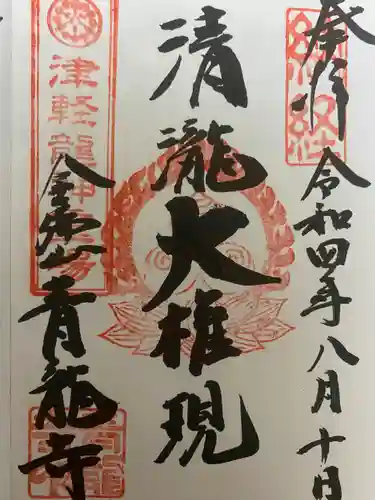 奉拝
令和四年八月十日
清瀧大権現
津軽龍神霊場
青龍寺